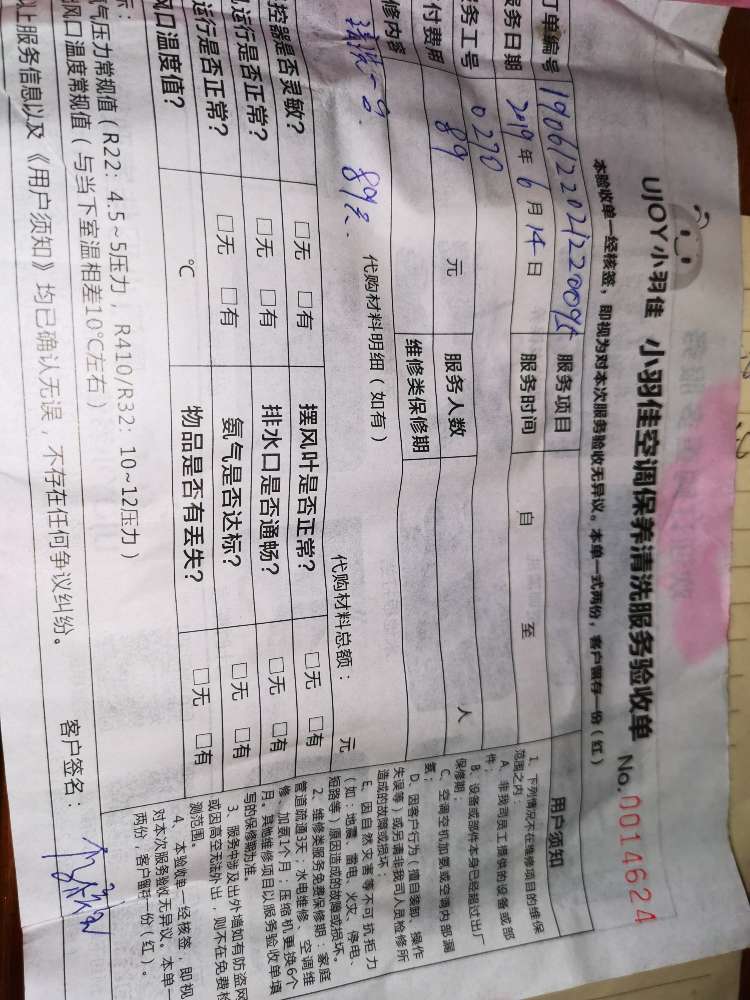 UJOY小羽佳 小羽佳空调保养清洗服务验收单 No.0014624
本验收单一经核签，即视为对本次服务验收无异议。本单一式两份，客户留存一份（红）
订单编号 服务项目
服务日期 2019年6月14日 服务时间 自 至
服务工号 0270 服务人数 人
付费用 89 元 维修类保修期
修内容 代购材料明细（如有）
清洗一台. 89元. 代购材料总额： 元
控器是否灵敏？ □无 □有 摆风叶是否正常？ □无 □有
运行是否正常？ □无 □有 排水口是否通畅？ □无 □有
运行是否正常？ □无 □有 氨气是否达标？ □无 □有
风口温度值？ ℃ 物品是否有丢失？ □无 □有
示：
气压力常规值（R22：4.5~5压力，R410/R32：10~12压力）
风口温度常规值（与当下室温相差10℃左右）
以上服务信息以及《用户须知》均已确认无误，不存在任何争议纠纷。
客户签名：
用户须知
1、下列情况不在维修项目的维保
范围之内：
A、非我司员工提供的设备或部
件；
B、设备或部件本身已经超过出厂
保修期；
C、空调空机加氨或空调内部漏
氨；
D、因客户行为（擅自装卸、操作
失误等）或另请非我司人员检修所
造成的故障或损坏；
E、因自然灾害等不可抗拒力
（如：地震、雷电、火灾、停电、
短路等）原因造成的故障或损坏。
2、维修类服务免费保修期：家庭
管道疏通3天；水电维修、空调维
修、加氨1个月；压缩机更换6个
月；其他维修项目以服务验收单填
写的保修期为准。
3、服务中涉及出外墙如有防盗网
或因真空无法外出，则不在免费检
测范围。
4、本验收单一经核签，即视
对本次服务验收无异议。本单一
两份，客户留存一份（红）。